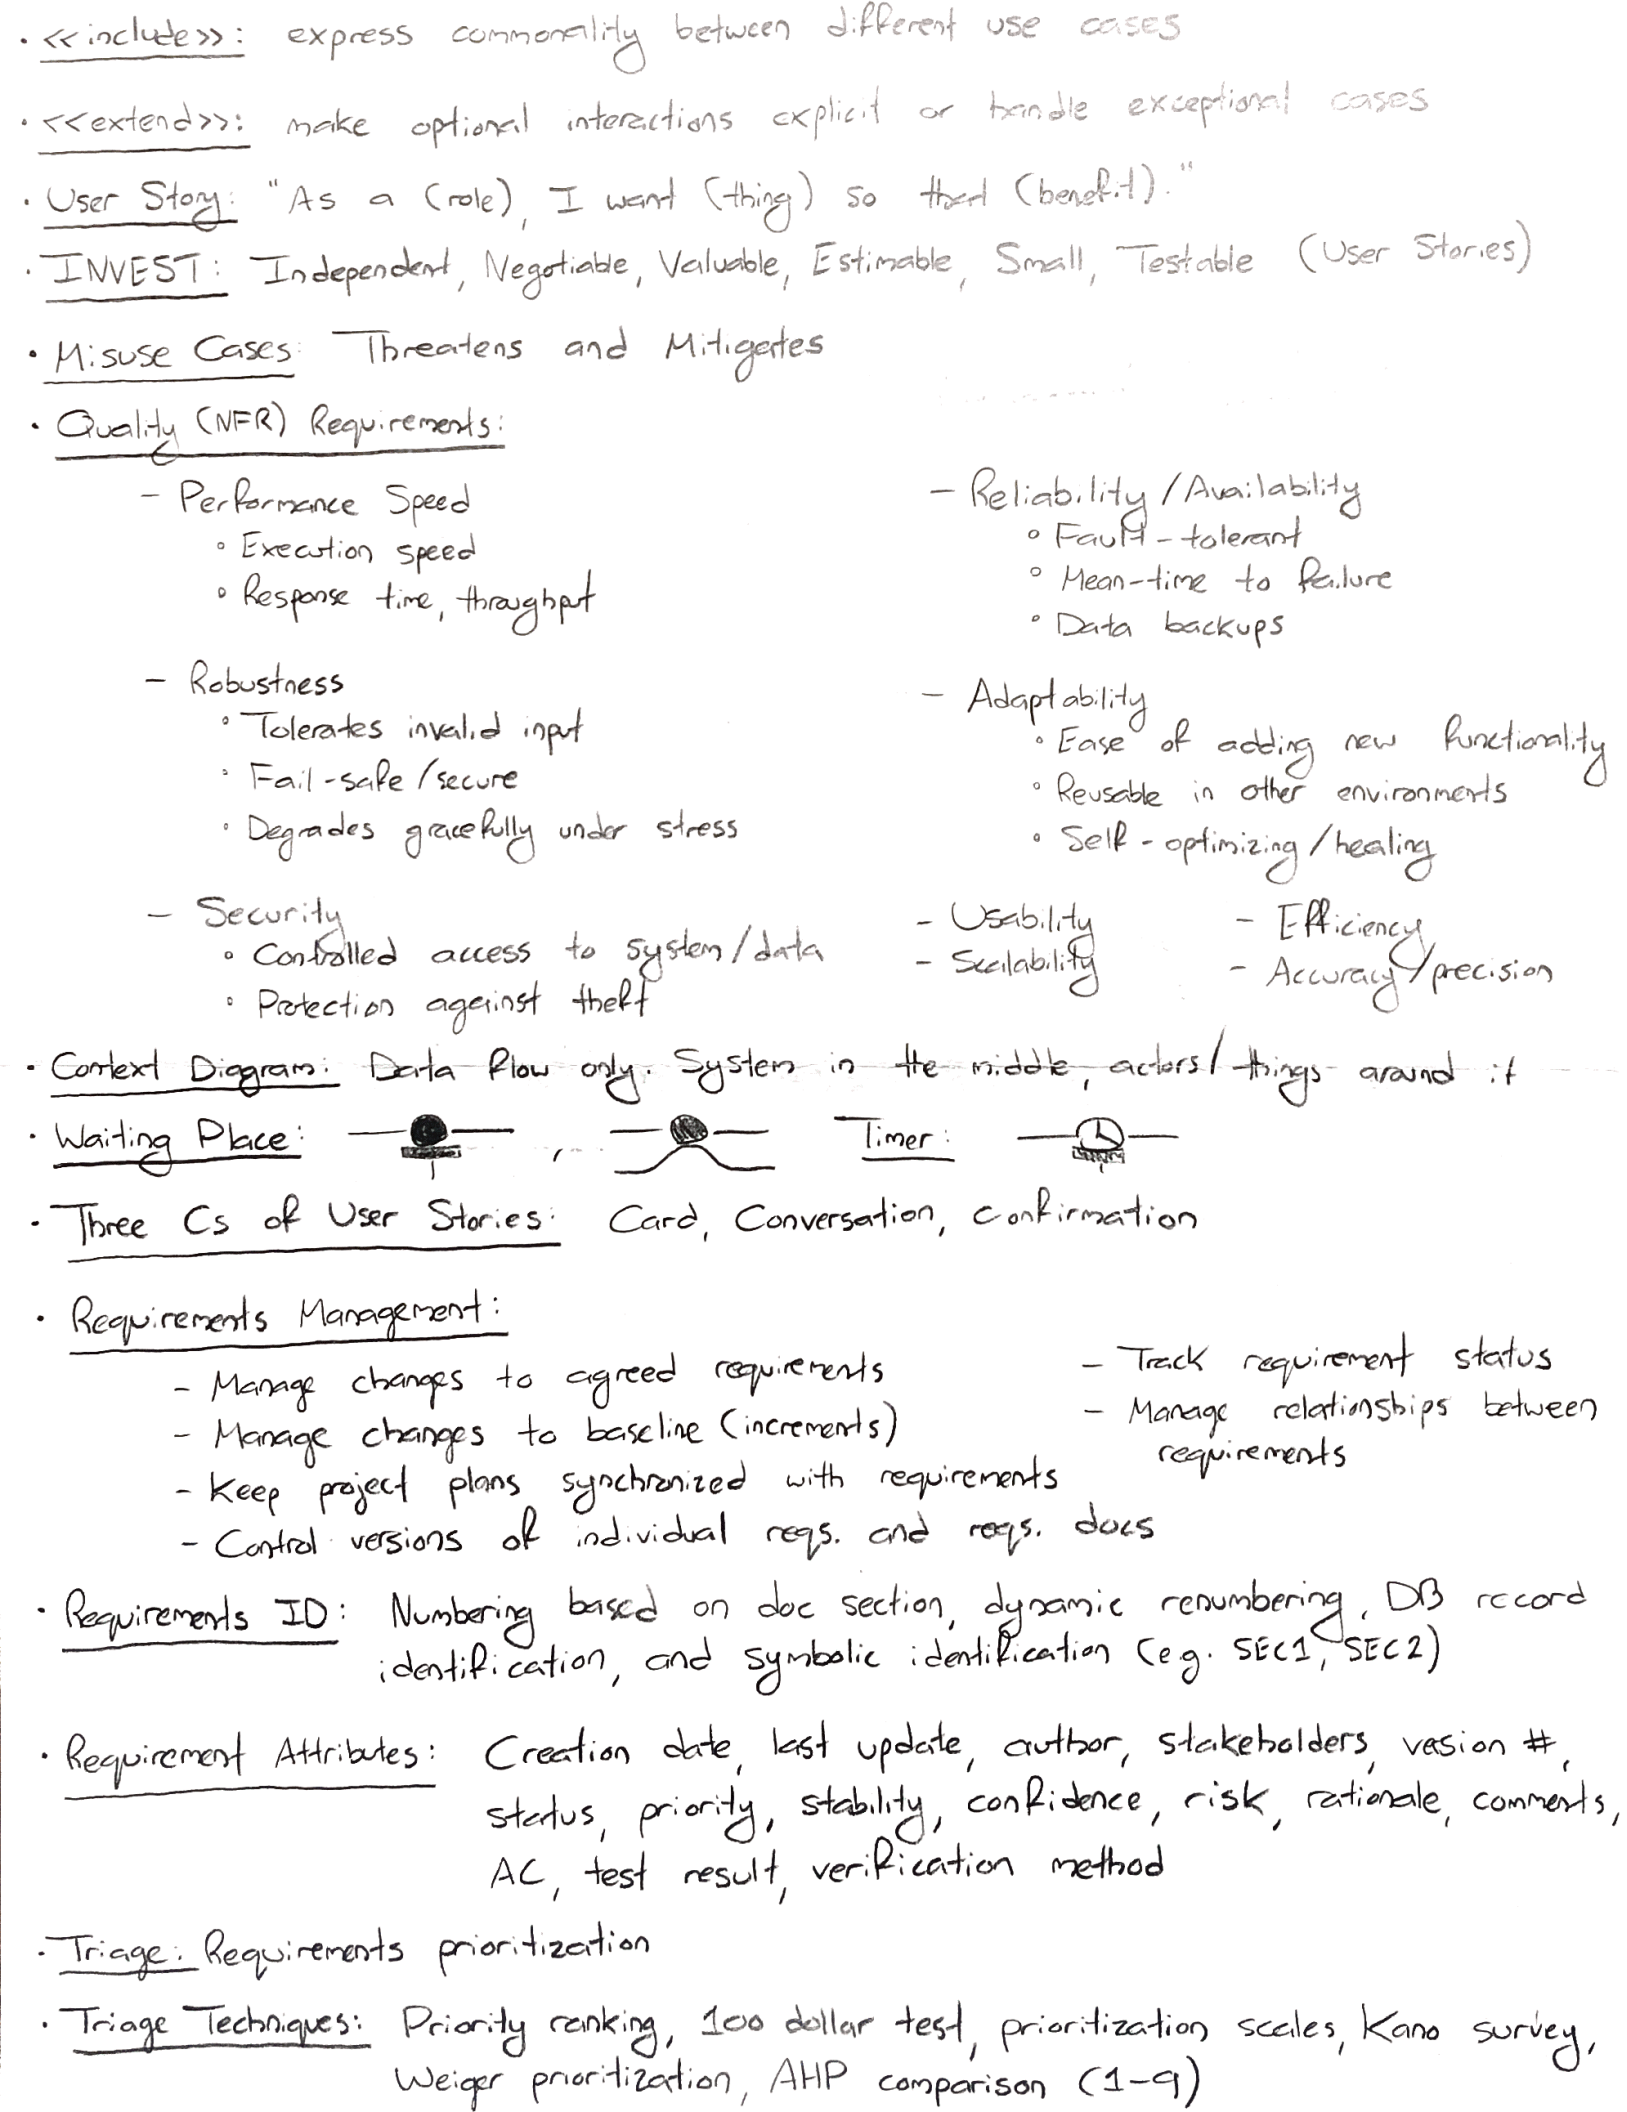 • <<include>>: express commonality between different use cases
• <<extend>>: make optional interactions explicit or handle exceptional cases
• User Story: "As a (role), I want (thing) so that (benefit)."
• INVEST: Independent, Negotiable, Valuable, Estimable, Small, Testable (User Stories)
• Misuse Cases: Threatens and Mitigates
• Quality (NFR) Requirements:
- Performance Speed
◦ Execution speed
◦ Response time, throughput
- Robustness
◦ Tolerates invalid input
◦ Fail-safe/secure
◦ Degrades gracefully under stress
- Security
◦ Controlled access to system/data
◦ Protection against theft
- Reliability/Availability
◦ Fault-tolerant
◦ Mean-time to failure
◦ Data backups
- Adaptability
◦ Ease of adding new functionality
◦ Reusable in other environments
◦ Self-optimizing/healing
- Usability
- Scalability
- Efficiency
- Accuracy/precision
• Context Diagram: Data flow only. System in the middle, actors/things around it
• Waiting Place: , Timer:
• Three Cs of User Stories: Card, Conversation, Confirmation
• Requirements Management:
- Manage changes to agreed requirements
- Manage changes to baseline (increments)
- Keep project plans synchronized with requirements
- Control versions of individual reqs. and reqs. docs
- Track requirement status
- Manage relationships between
requirements
• Requirements ID: Numbering based on doc section, dynamic renumbering, DB record
identification, and symbolic identification (e.g. SEC1, SEC2)
• Requirement Attributes: Creation date, last update, author, stakeholders, vesion #,
status, priority, stability, confidence, risk, rationale, comments,
AC, test result, verification method
• Triage: Requirements prioritization
• Triage Techniques: Priority ranking, 100 dollar test, prioritization scales, Kano survey,
Weiger prioritization, AHP comparison (1-9)